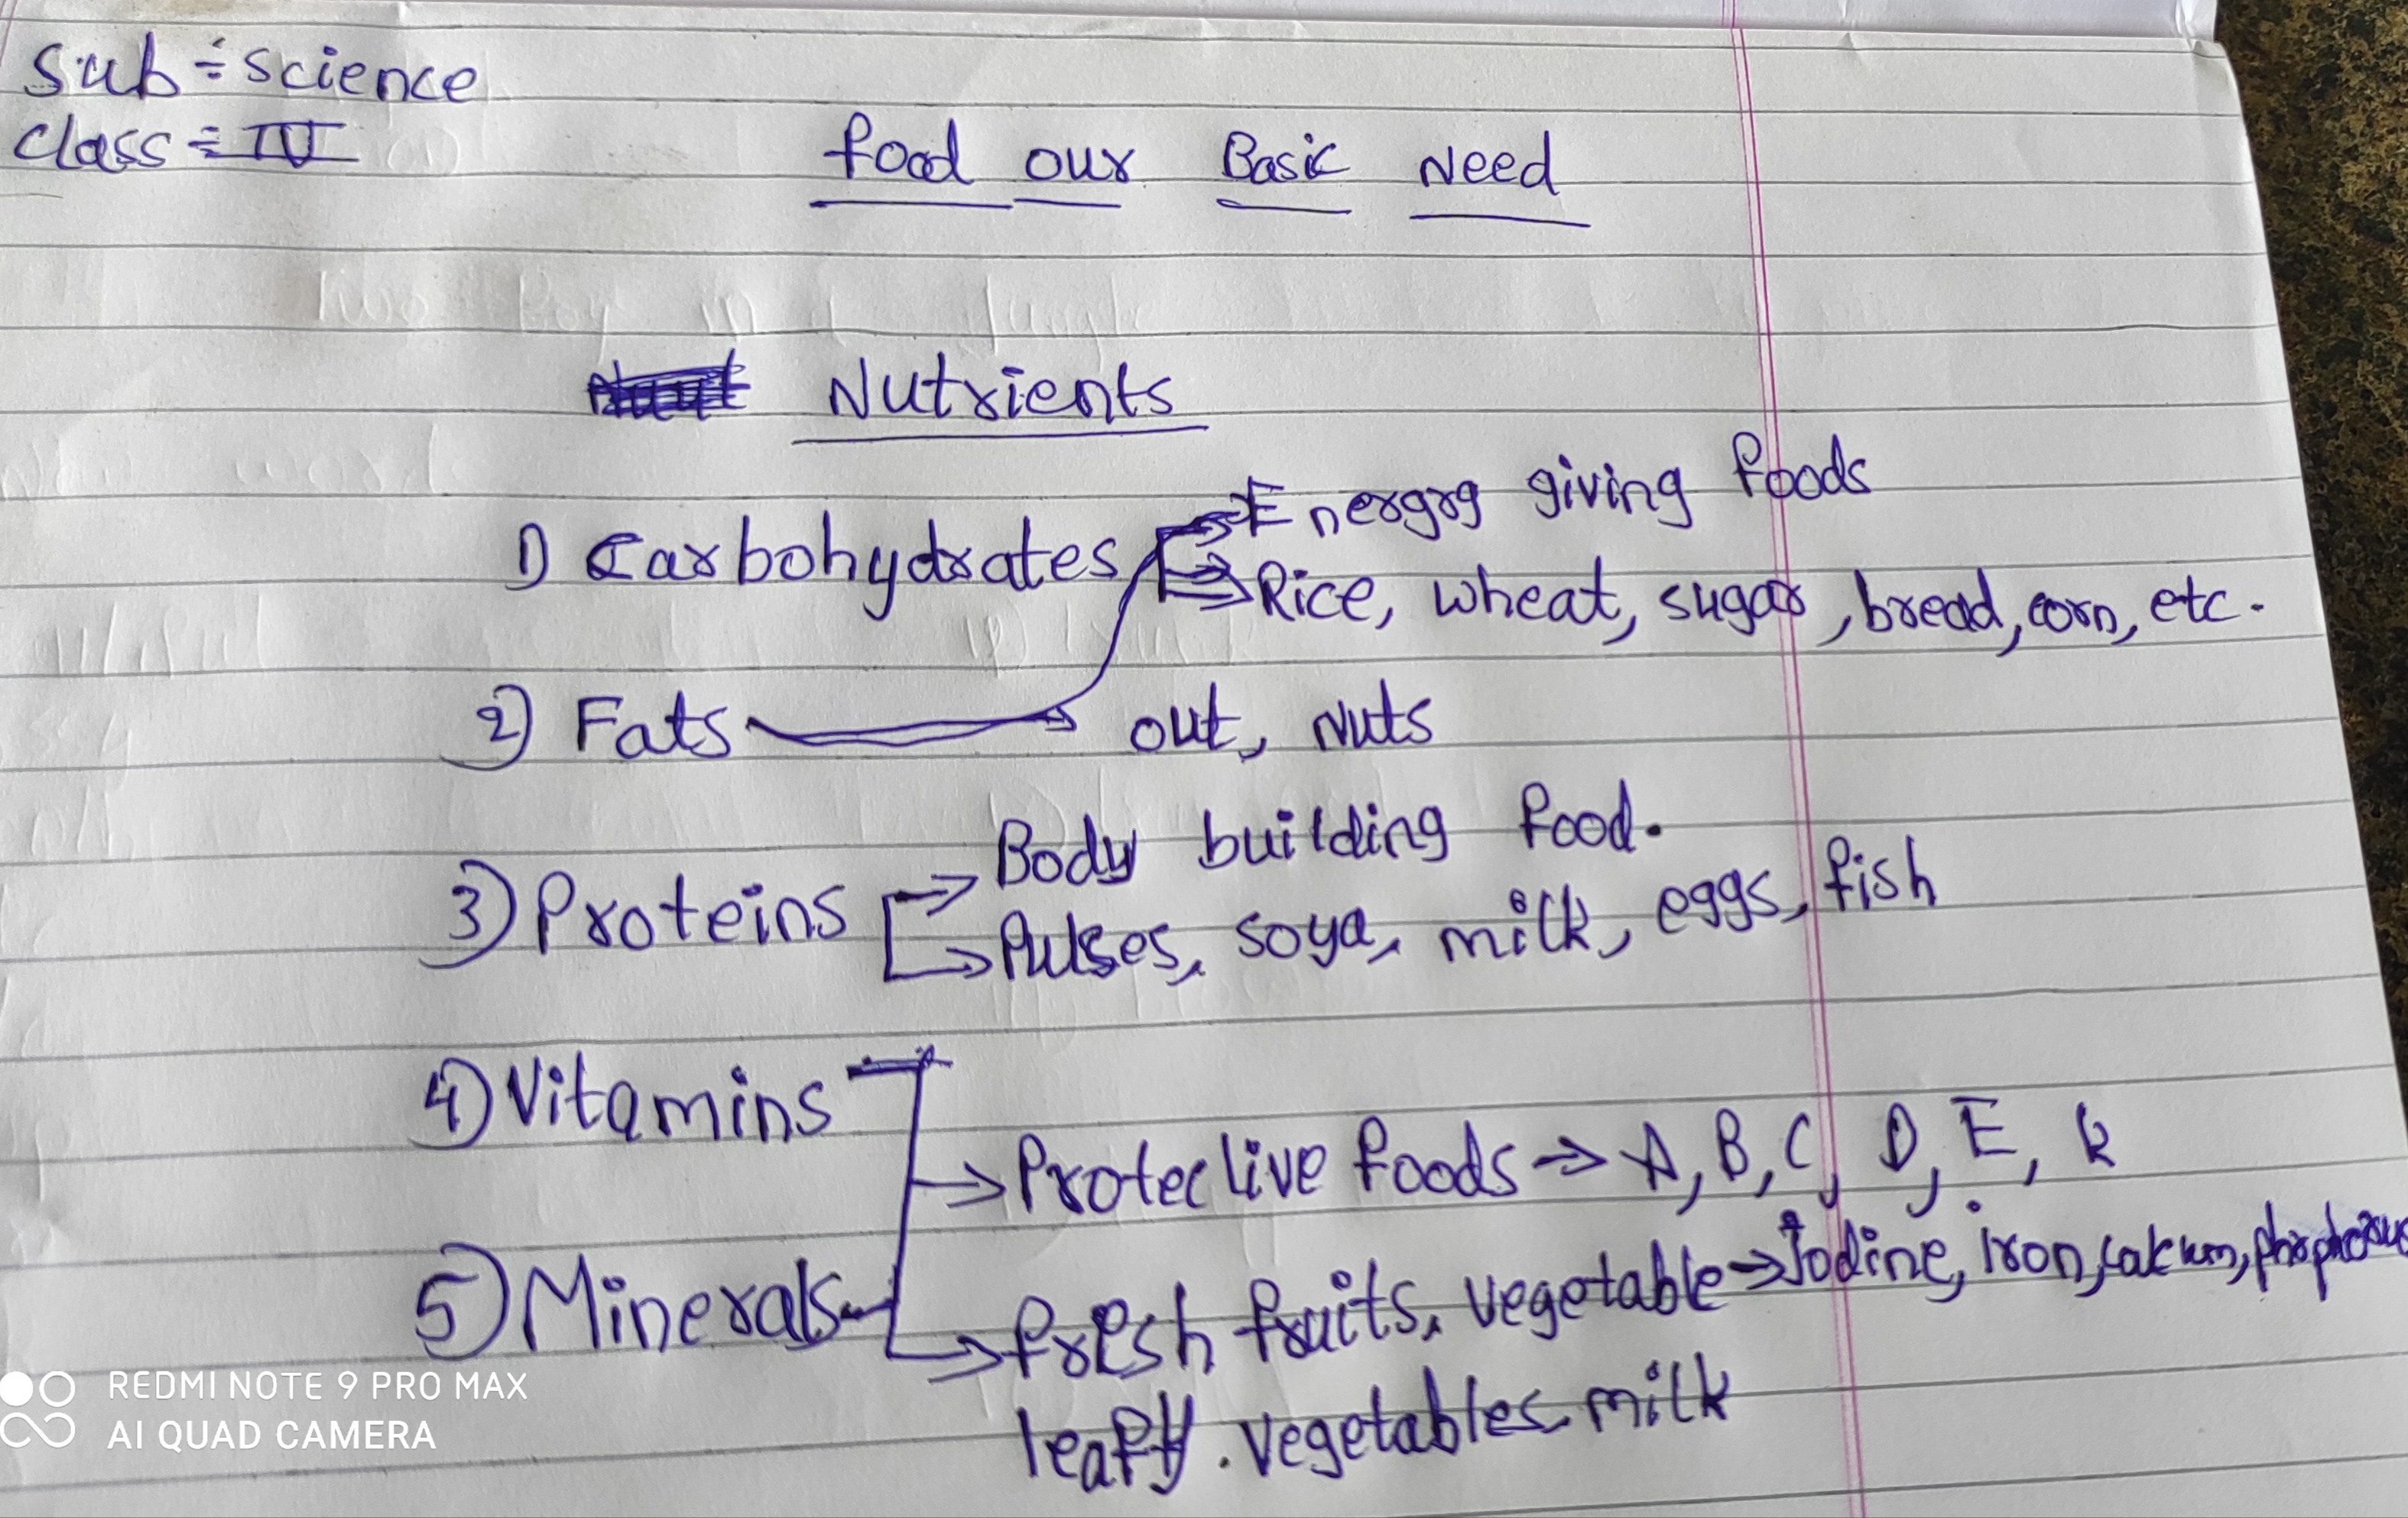 Sub ÷ science
Class ÷ IV
food our Basic Need
Nutrients
1) Carbohydrates Energrg giving foods
Rice, wheat, sugar, bread, corn, etc.
2) Fats out, Nuts
3) Proteins Body building food.
Pulses, soya, milk, eggs, fish
4) Vitamins
Proteclive foods → A, B, C, D, E, k
5) Minerals fresh fruits, vegetable → Iodine, iron, calcium, phosphorus
leafy. vegetables milk
REDMI NOTE 9 PRO MAX
AI QUAD CAMERA